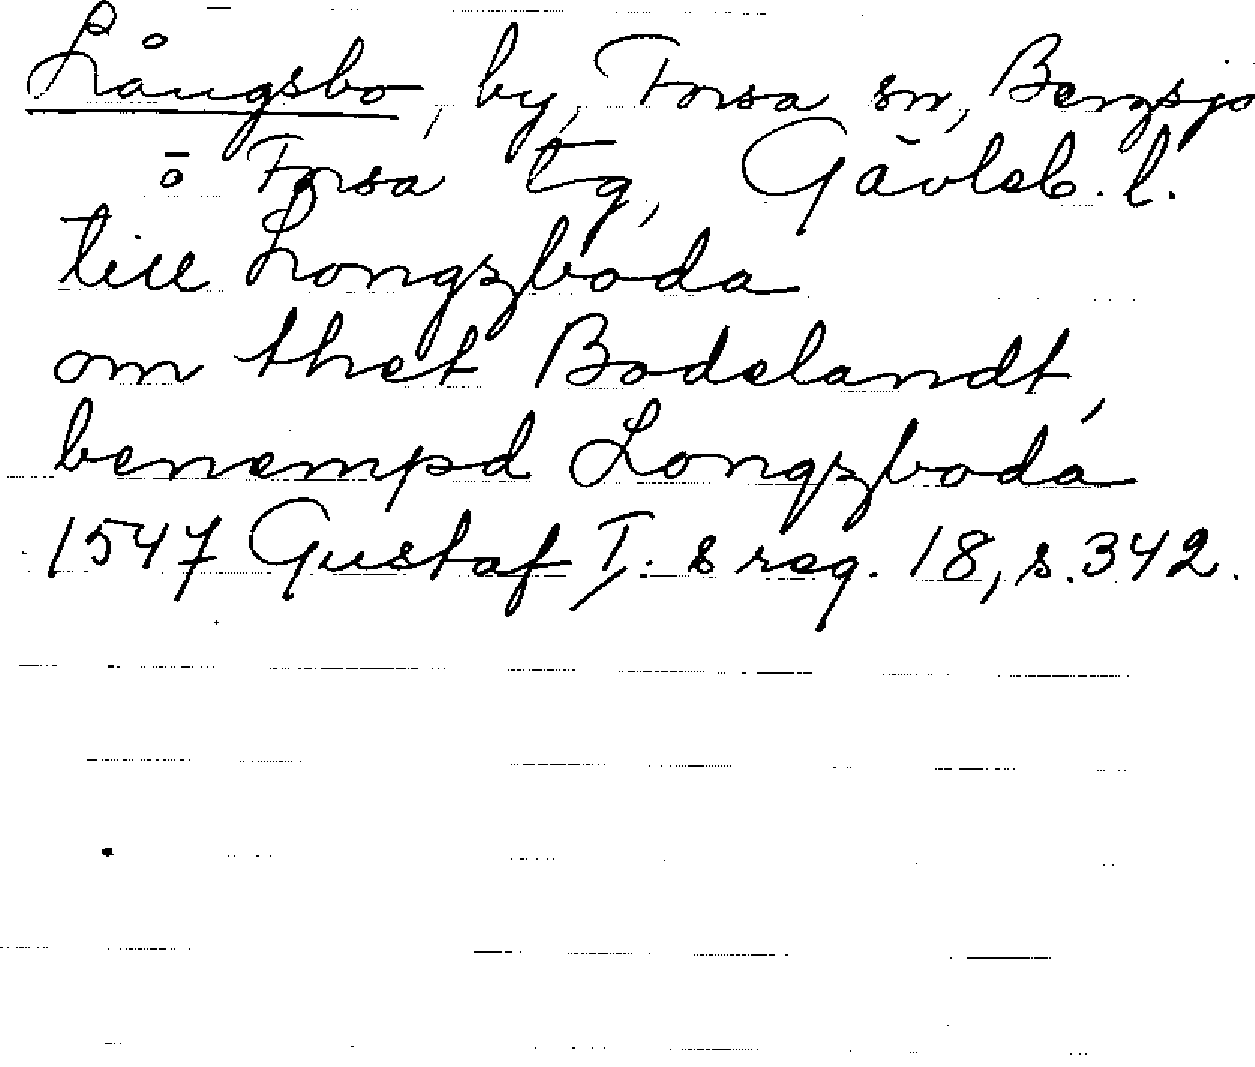 Långsbo, by, Forsa sn, Bergsjö
o Forsa tg, Gävleb. l.
till Longzboda
om thet Bodelandt,
benempd Longzboda
1547 Gustaf I. s reg. 18, s. 342.